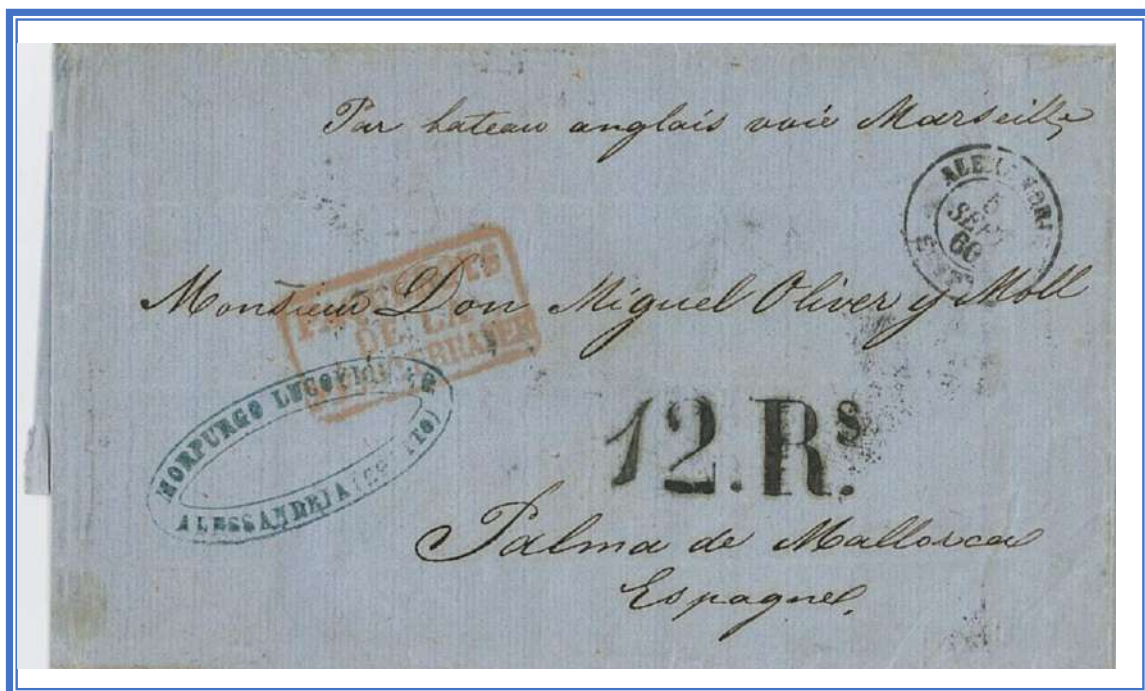 Par bateau anglais voie Marseille
ALEXANDRIE
5
SEPT
60
Monsieur Don Miguel Oliver y Moll
DE LA
MORPURGO
ALESSANDRIA
12.Rs.
Palma de Mallorca
Espagne